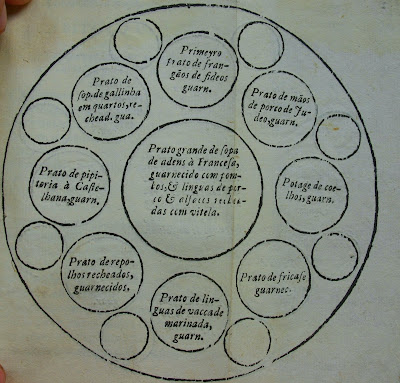 Primeyro
prato de fran-
gãos de fideos
guarn.
Prato de mãos
de porco de Ju-
deo, guarn.
Potage de coe-
lhos, guarn.
Prato de fricase
guarnec.
Prato de lin-
guas de vacca de
marinada,
guarn.
Prato de repo-
lhos recheados,
guarnecidos,
Prato de pipi-
toria à Caste-
lhana, guarn.
Prato de
sop. de gallinha
em quartos, re-
chead. gua.
Prato grande de sopa
de adens à Francesa,
guarnecido com pom-
bos, & linguas de por-
co & alfaces rechea-
das com vitela.